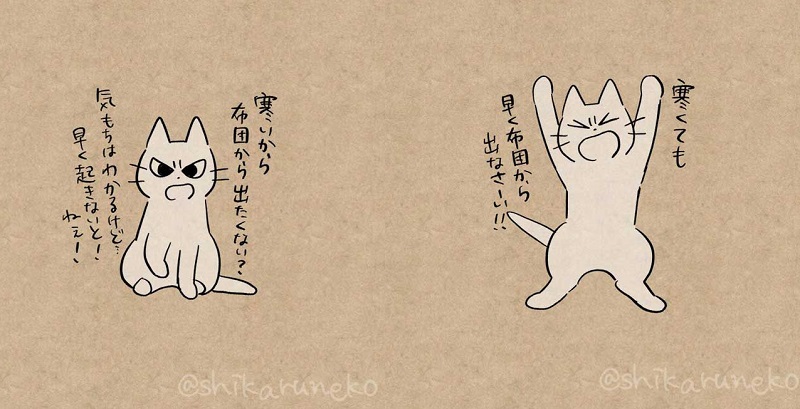 寒いから
布団から出たくない?
気もちはわかるけど…
早く起きないと!
ねぇ!
寒くても
早く布団から
出なさーい!!
@shikaruneko
@shikaruneko